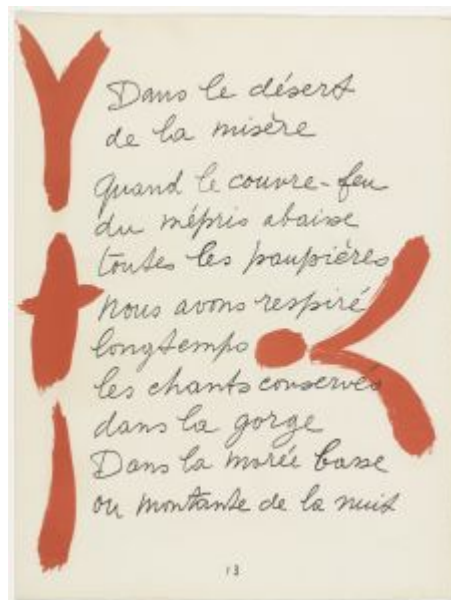 Dans le désert
de la misère
Quand le couvre-feu
du mépris abaisse
toutes les paupières
nous avons respiré
longtemps
les chants conservés
dans la gorge
Dans la marée basse
ou montante de la nuit
13